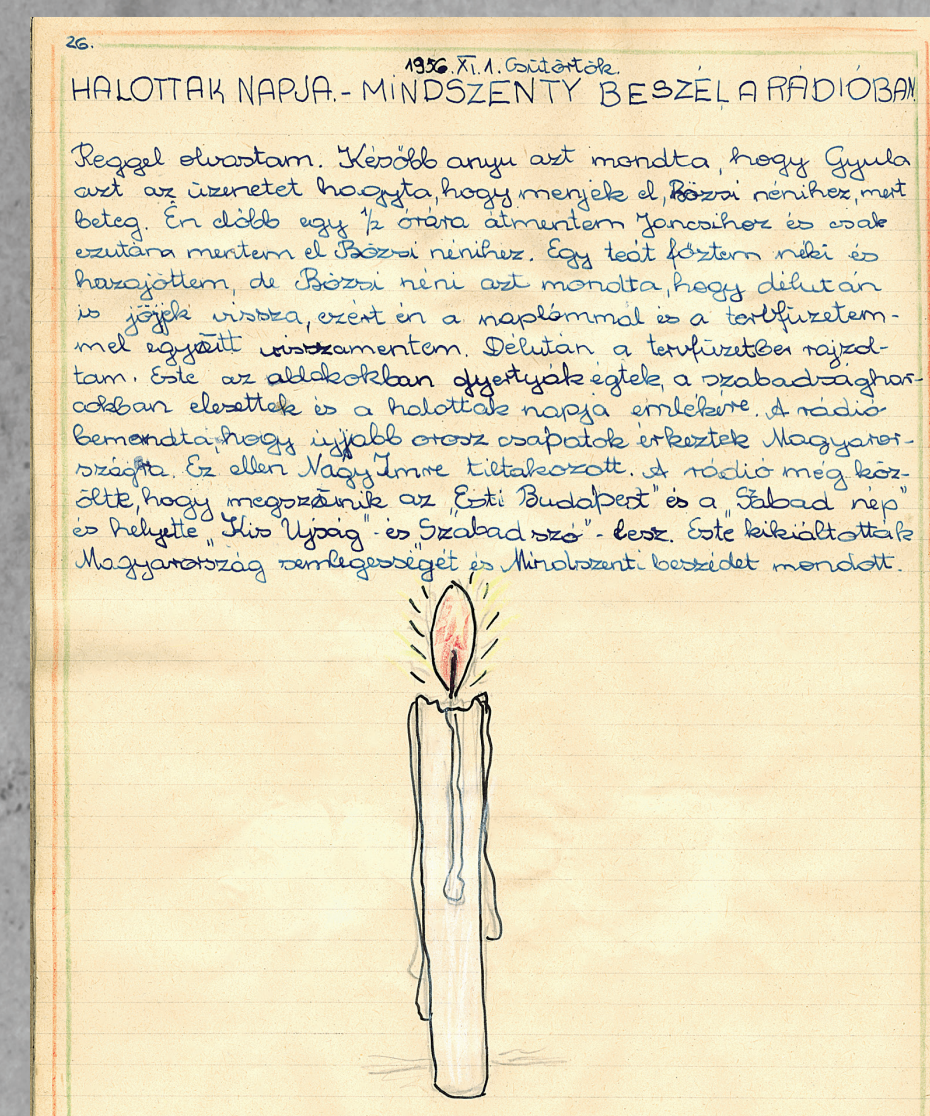 26.
1956. XI. 1. Csütörtök.
HALOTTAK NAPJA. - MINDSZENTY BESZÉL A RÁDIÓBAN
Reggel olvastam. Később anyu azt mondta, hogy Gyula
azt az üzenetet hagyta, hogy menjek el, Bözsi nénihez, mert
beteg. Én előbb egy 1/2 órára átmentem Jancsihoz és csak
ezutána mentem el Bözsi nénihez. Egy teát főztem néki és
hazajöttem, de Bözsi néni azt mondta, hogy délután
is jöjjek vissza, ezért én a naplómmal és a tervfüzetem-
mel együtt visszamentem. Délután a tervfüzetbe rajzol-
tam. Este az ablakokban gyertyák égtek, a szabadsághar-
cokban elesettek és a halottak napja emlékére. A rádió
bemondta, hogy újjabb orosz csapatok érkeztek Magyaror-
szágra. Ez ellen Nagy Imre tiltakozott. A rádió még köz-
ölte, hogy megszűnik az "Esti Budapest" és a "Szabad nép"
és helyette "Kis Ujság" - és "Szabad szó" - lesz. Este kikiáltották
Magyarország semlegességét és Mindszenti beszédet mondott.